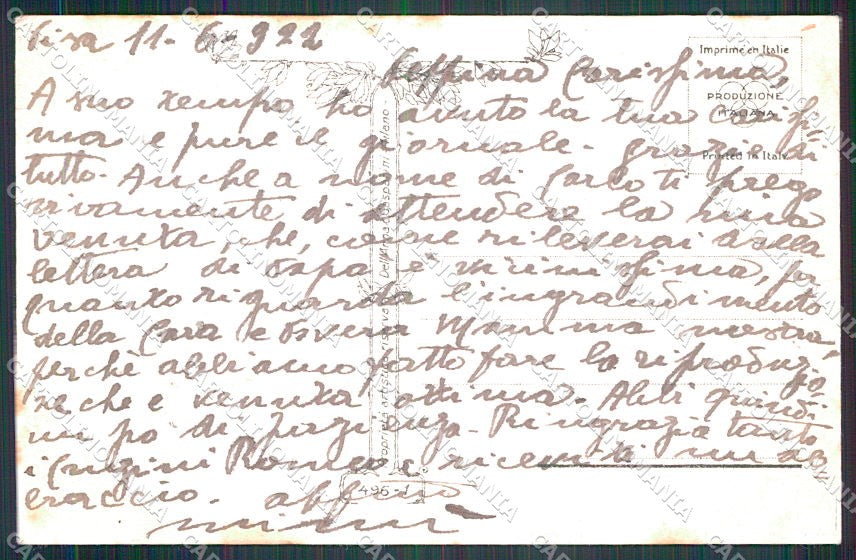 Pisa 11-6-922
Peppina Carissima,
A suo tempo ho avuto la tua carissi
ma e pure il giornale. grazie di
tutto. Anche a nome di Carlo ti prego
vivamente di attendere la mia
venuta, che, come rileverai dalla
lettera di papà è vicinissima, per
quanto riguarda l'ingrandimento
della Cara e Mamma nostra,
perchè abbiamo fatto fare la riproduzio
ne che è venuta ottima. Abbi quindi
un po' di pazienza. Ringrazia tanto
i Cugini Romeo e ricevi un ab
braccio. aff
Mimì
Imprimé en Italie
PRODUZIONE
ITALIANA
Printed in Italy
Proprietà artistica riservata - Dell'Anna & Gasparini - Milano
495-1
CARTOLINOMANIA